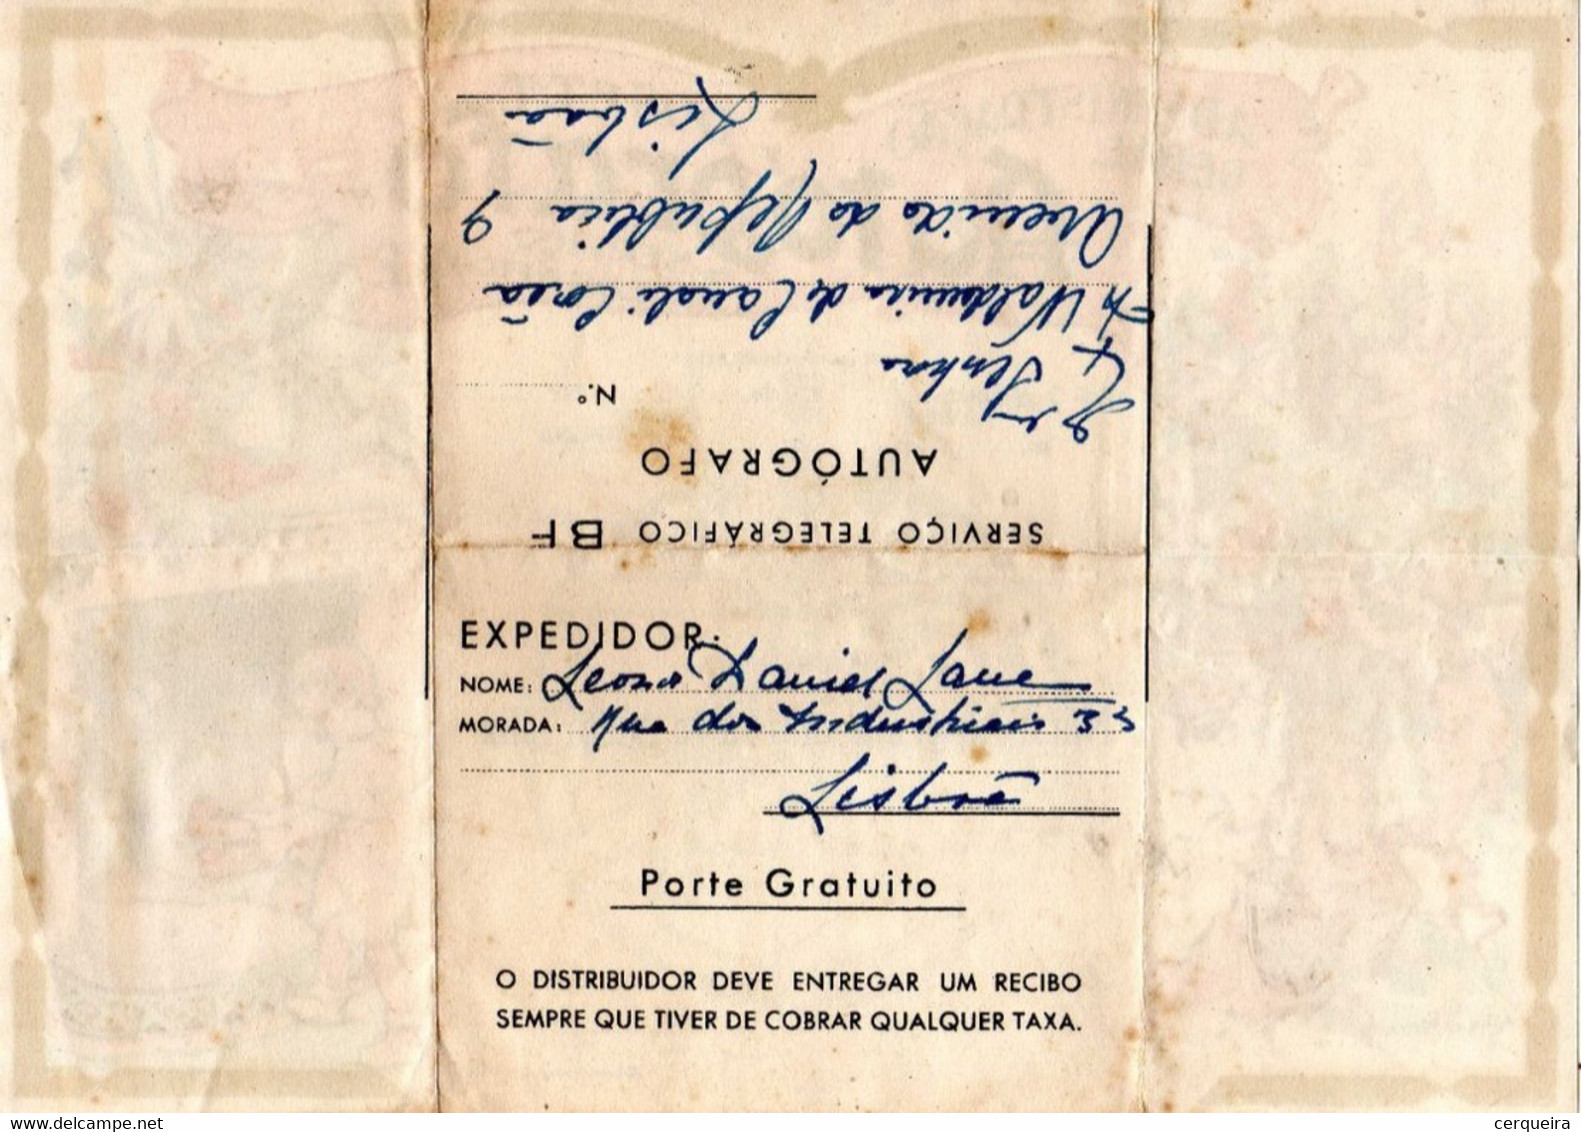 SERVIÇO TELEGRÁFICO BF
AUTÓGRAFO
N.º
Senhora
Avenida da Republica 9
Lisboa
EXPEDIDOR:
NOME: Daniel
MORADA: Rua dos Industriais 33
Lisboa
Porte Gratuito
O DISTRIBUIDOR DEVE ENTREGAR UM RECIBO
SEMPRE QUE TIVER DE COBRAR QUALQUER TAXA.
www.delcampe.net
cerqueira